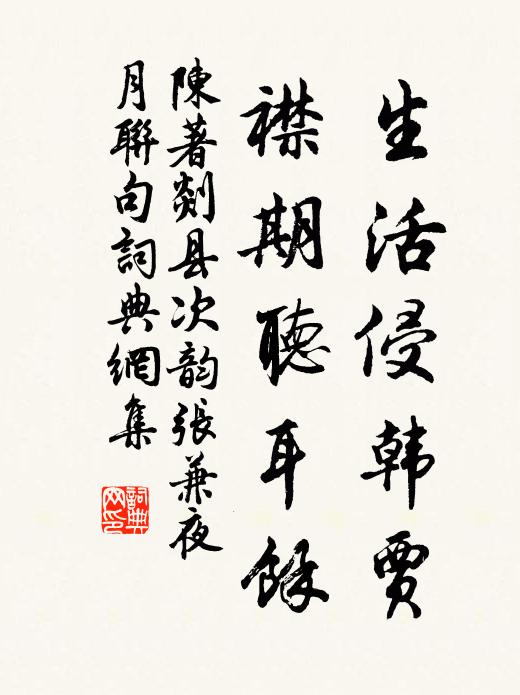 生活侵韩贾
襟期聽耳餘
陳著剡县次韵張兼夜
月聯句詞典網集
詞典
网印